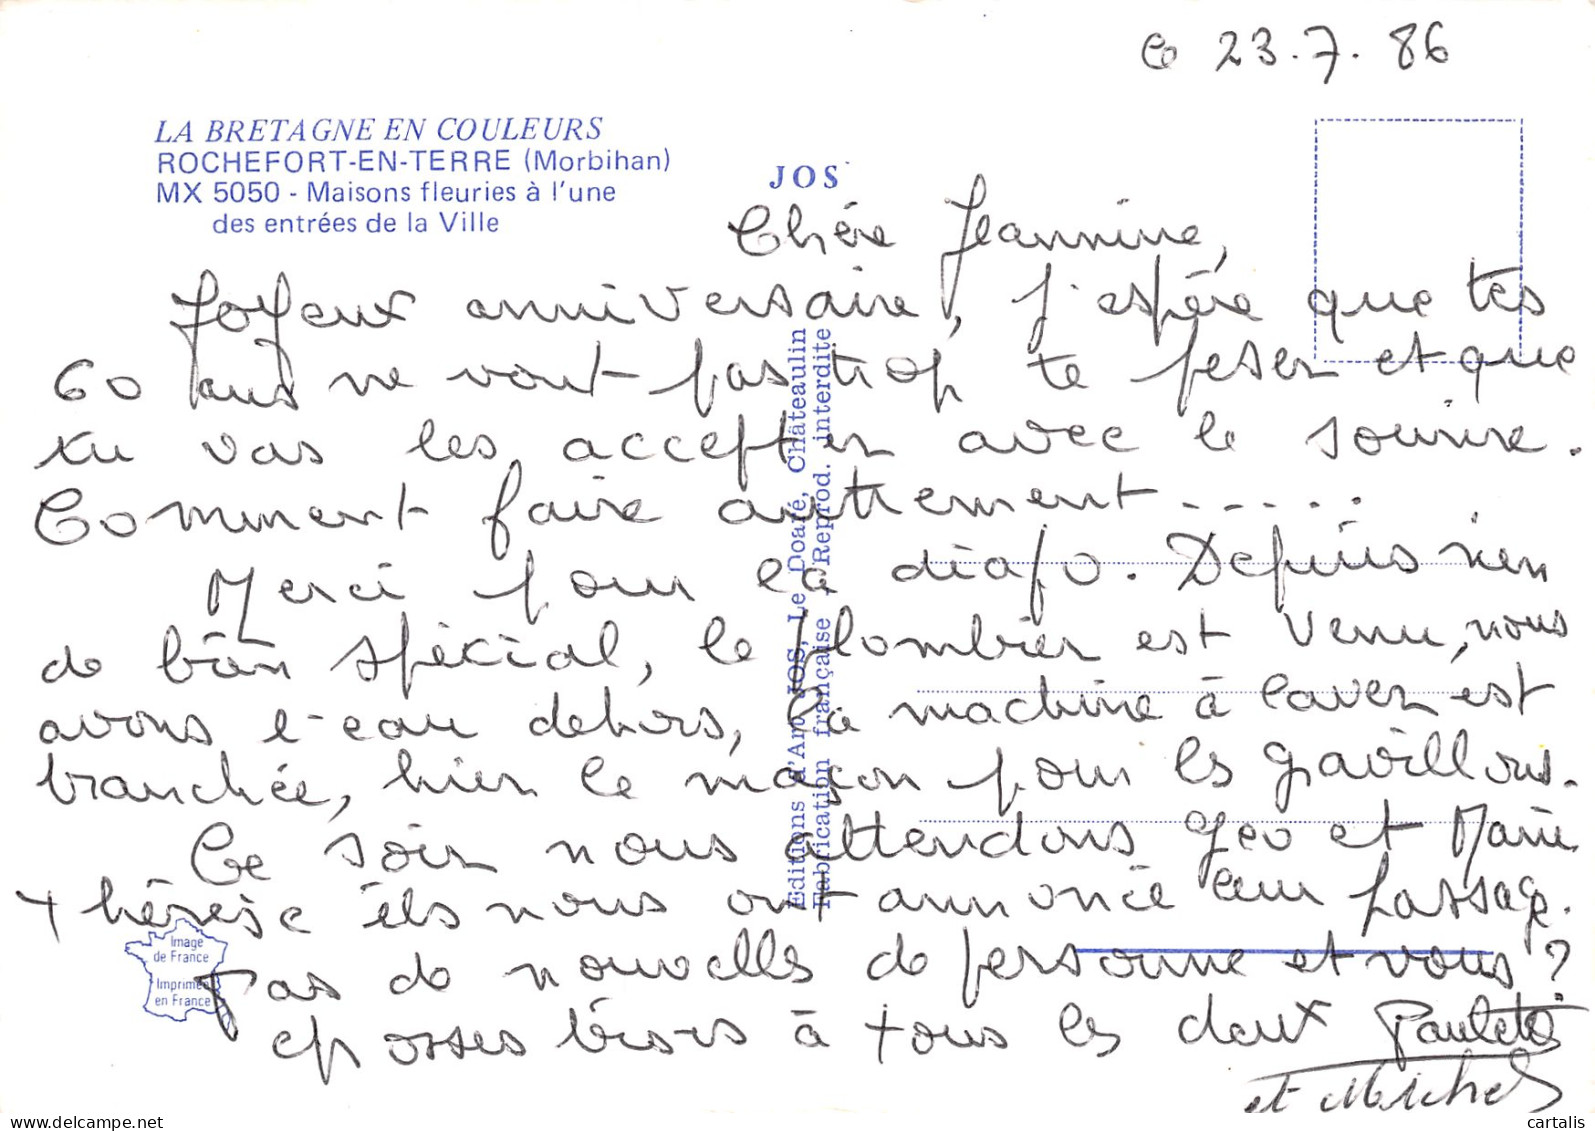 le 23.7.86
LA BRETAGNE EN COULEURS
ROCHEFORT-EN-TERRE (Morbihan)
MX 5050 - Maisons fleuries à l'une
des entrées de la Ville
JOS
Chère Jeannine,
Joyeux anniversaire, j'espère que tes
60 ans ne vont pas trop te peser et que
tu vas les accepter avec le sourire.
Comment faire autrement .....
Merci pour la diapo. Depuis rien
de bien spécial, le plombier est venu, nous
avons l'eau dehors, la machine à laver est
branchée, hier le maçon pour les gravillons.
Ce soir nous attendons Geo et Marie
thérèse ils nous ont annoncé leur passage.
Pas de nouvelles de personne et vous ?
grosses bises à tous les deux Paulette
et Michel
Editions d'Art JOS, Le Doaré, Châteaulin
Fabrication française - Reprod. interdite
Image
de France
Imprimée
en France
www.delcampe.net
cartalis